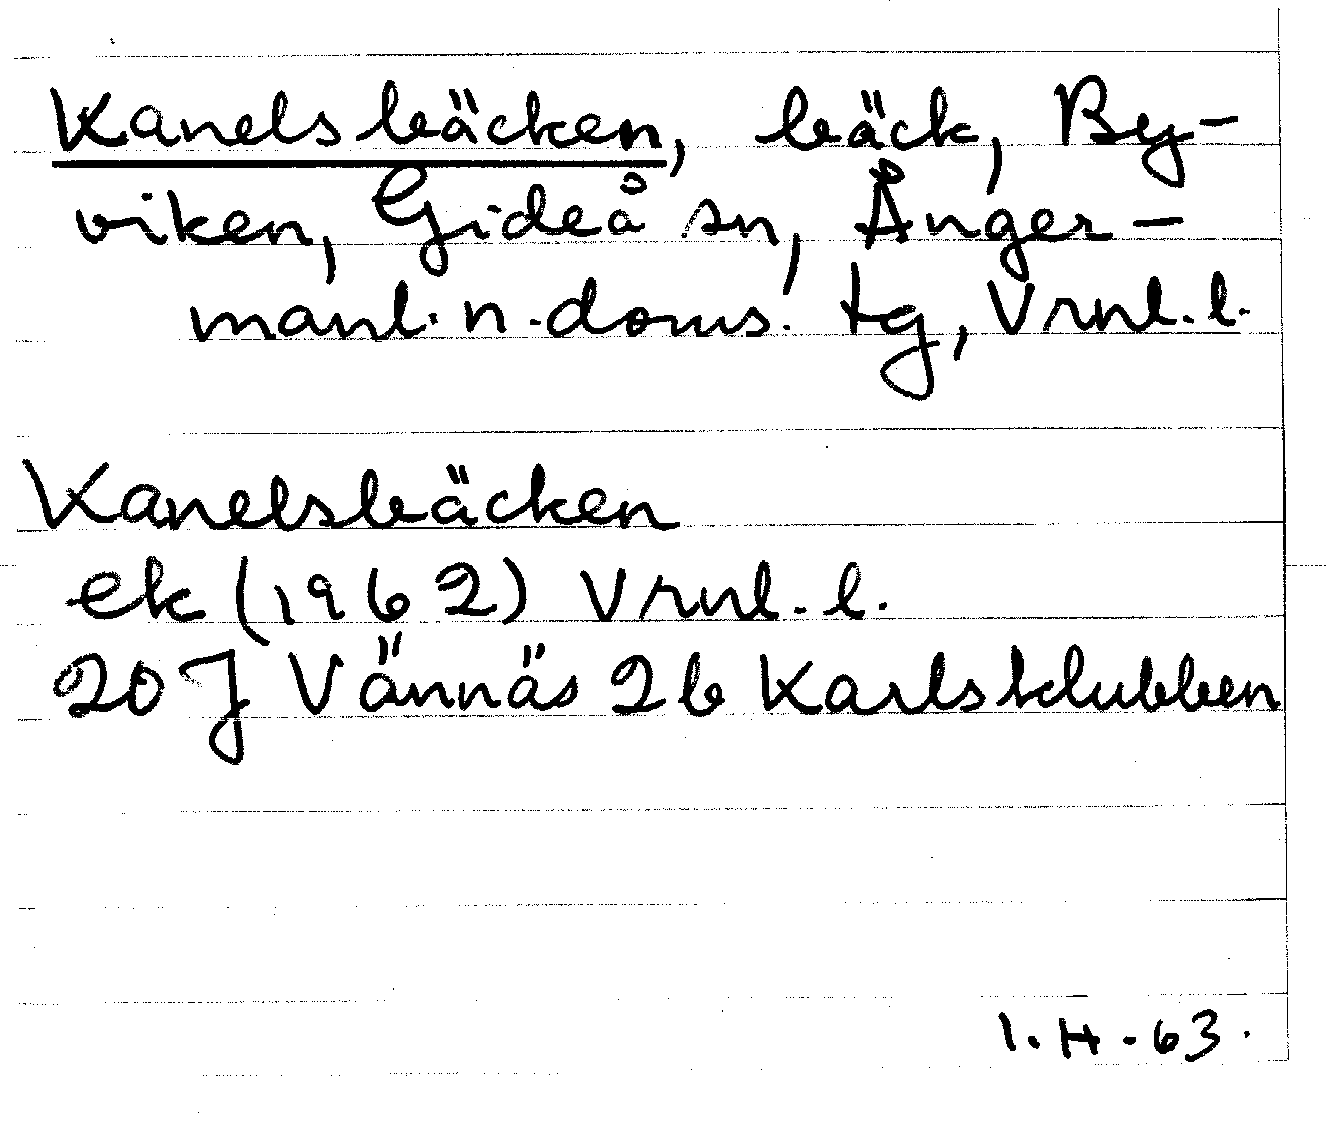 Kanelsbäcken, bäck, By-
viken, Gideå sn, Ånger-
manl. n. doms. tg, Vrnl. l.
Kanelsbäcken
ek (1962) Vrnl. l.
20 J Vännäs 2b Karlsklubben
I. H - 63.